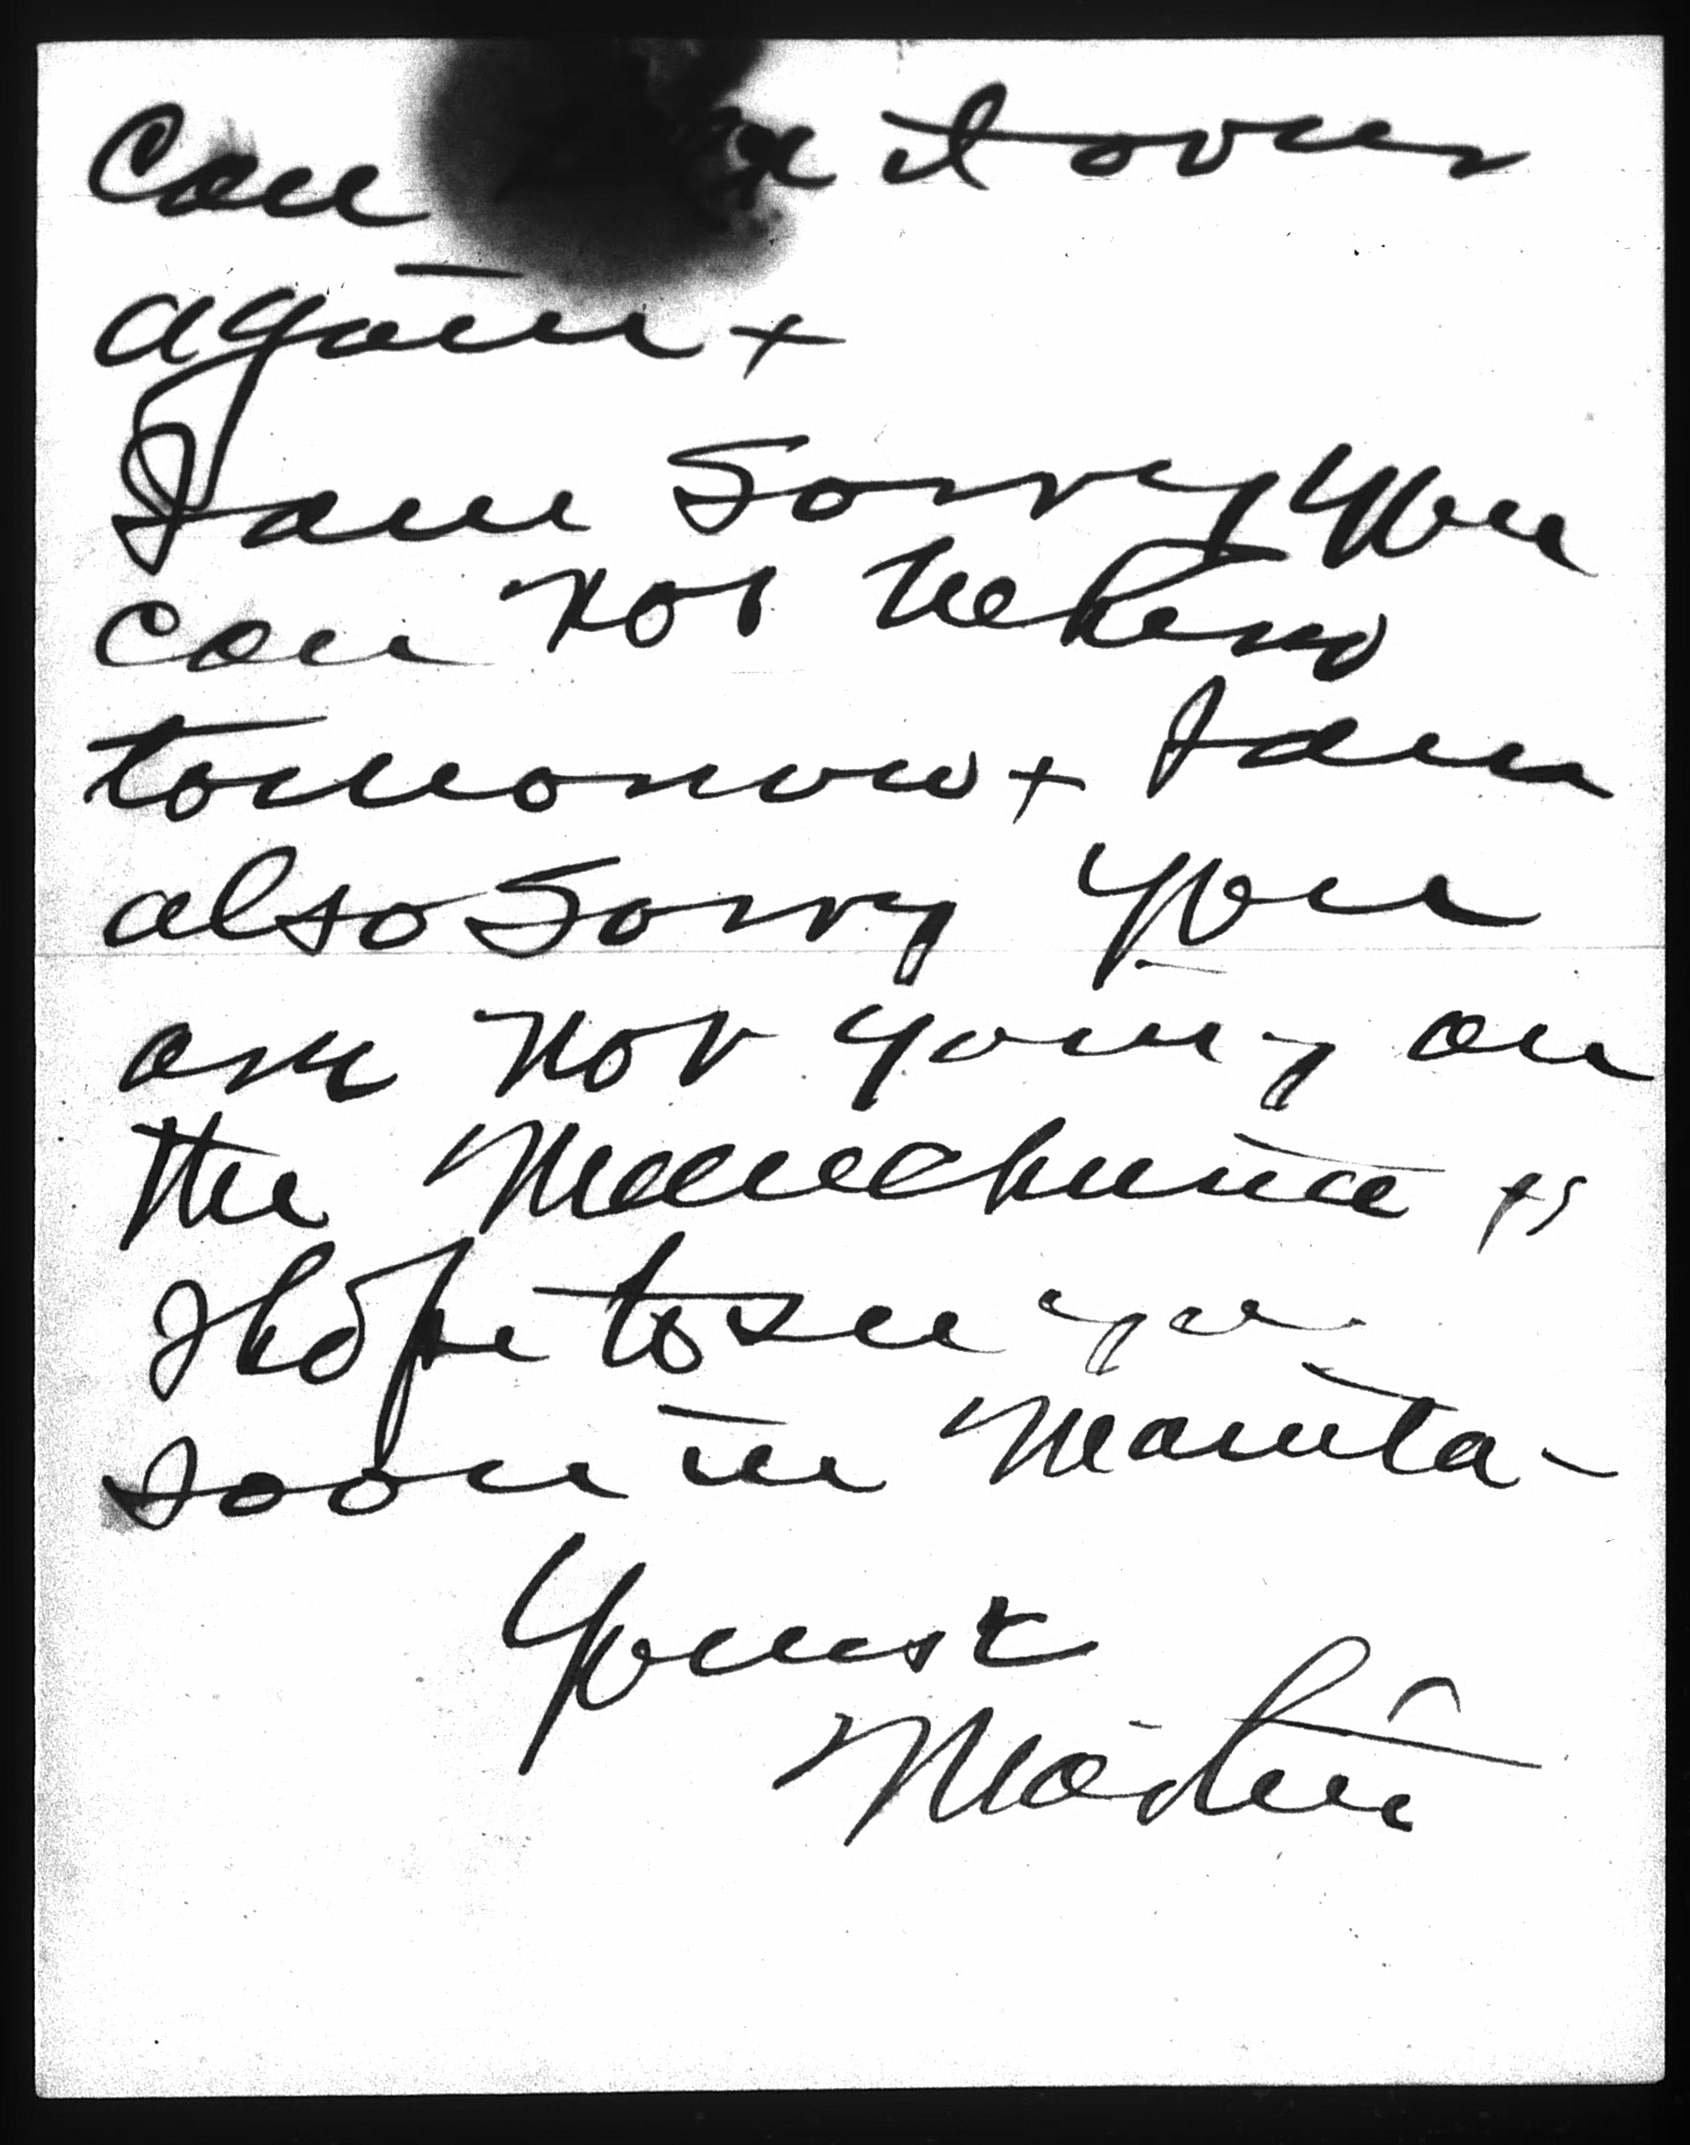 Can it over
again +
I am Sorry You
can not be here
tomorrow + I am
also Sorry You
are not going on
the Manchuria +
I hope to see you
soon in Manila -
Yours